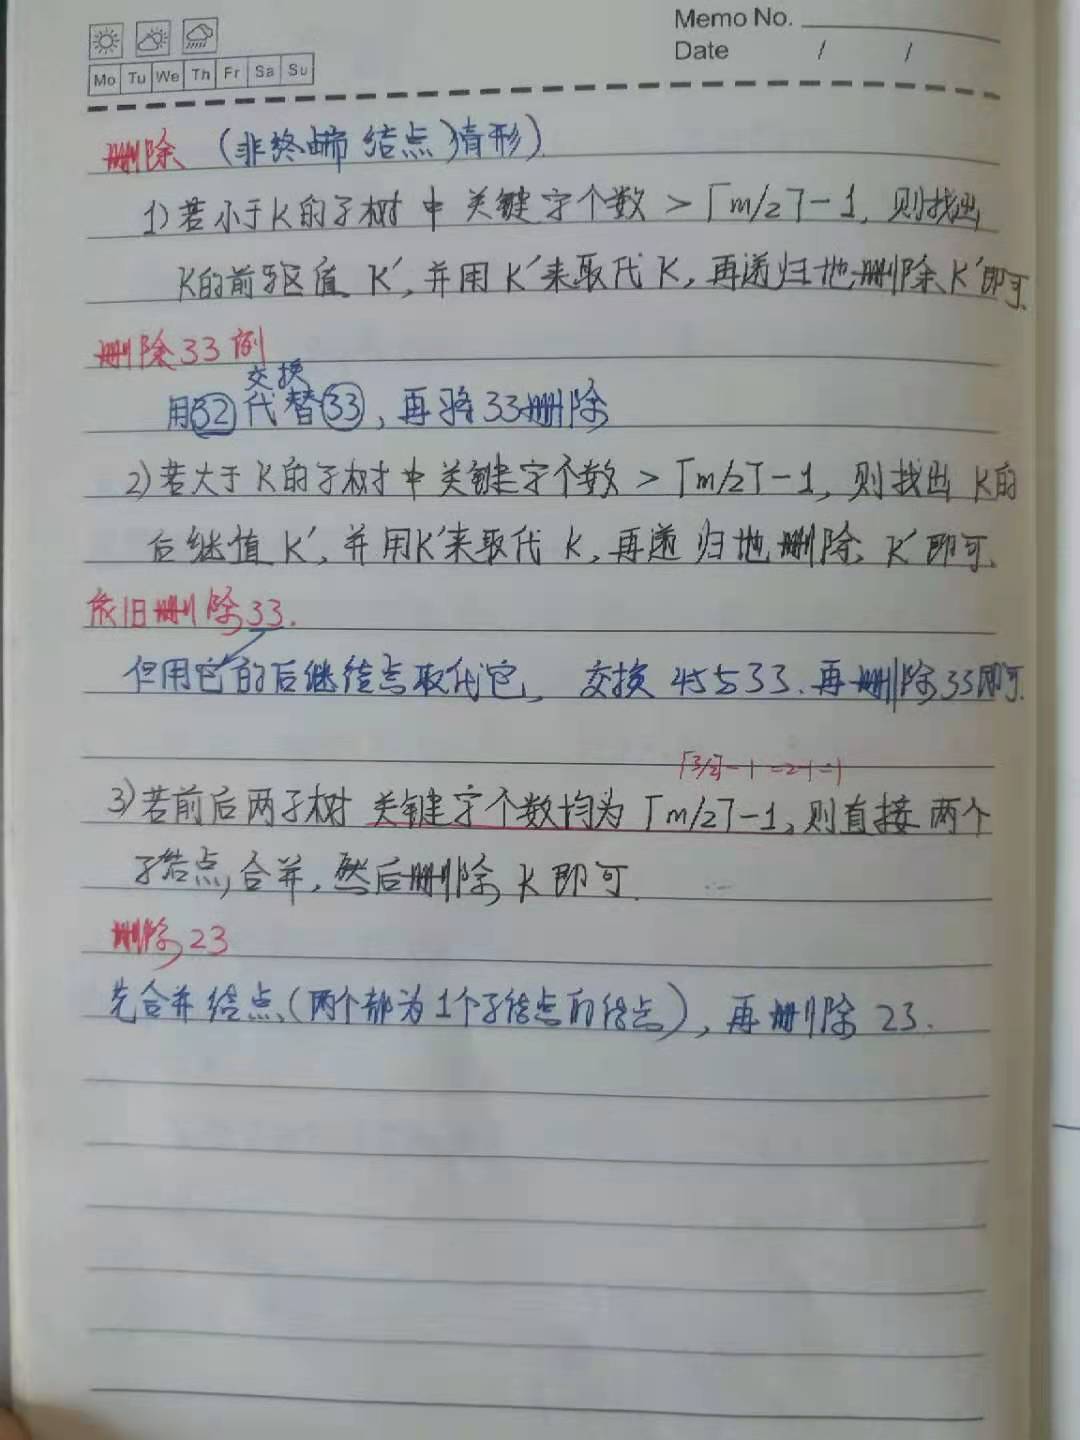 Memo No.
Date / /
Mo Tu We Th Fr Sa Su
删除 (非终端结点)情形)
1)若小于K的子树中关键字个数>⌈m/2⌉-1, 则找出
K的前驱值 K′, 并用K′来取代K, 再递归地删除K′即可.
删除33例
交换
用32代替33, 再将33删除
2)若大于K的子树中关键字个数>⌈m/2⌉-1, 则找出 K的
后继值 K′, 并用K′来取代 K, 再递归地删除 K′即可.
依旧删除33.
但用它的后继结点取代它, 交换45与33.再删除33即可.
⌈3/2⌉-1=2-1=1
3)若前后两子树 关键字个数均为⌈m/2⌉-1, 则直接两个
子结点合并, 然后删除 K即可.
删除23
先合并结点(两个都为1个子结点的结点), 再删除 23.